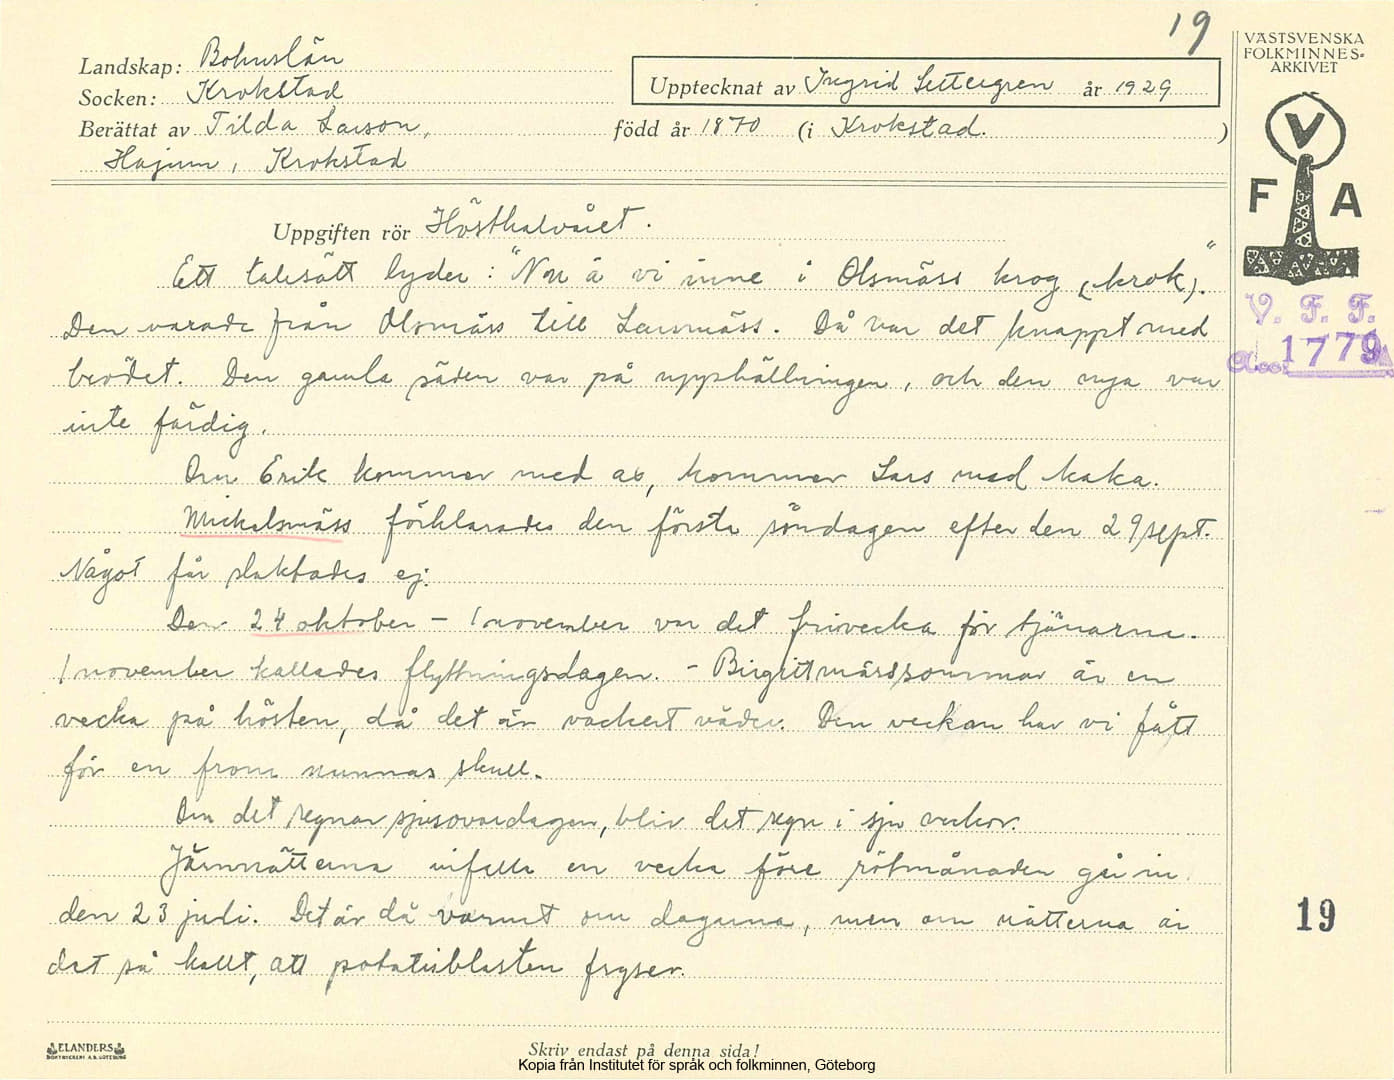 19
VÄSTSVENSKA
FOLKMINNES-
ARKIVET
Landskap: Bohuslän
Socken: Krokstad
Upptecknat av Ingrid Settergren år 1929
Berättat av Tilda Larson, född år 1870 (i Krokstad. )
Hajum, Krokstad
V
F A
Uppgiften rör Hösthalvåret.
Ett talesätt lyder: "Nu ä vi inne i Olsmäss krog (krok)."
Den varade från Olsmäss till Larsmäss. Då var det knappt med
brödet. Den gamla säden var på upphällningen, och den nya var
inte färdig.
Om Erik kommer med ax, kommer Lars med kaka.
Mickelsmäss förklarades den första söndagen efter den 29 sept.
Något får slaktades ej.
Den 24 oktober - 1 november var det frivecka för tjänarna.
1 november kallades flyttningsdagen. - Birgittmässsommar är en
vecka på hösten, då det är vackert väder. Den veckan har vi fått
för en from nunnas skull.
Om det regnar sjusovaredagen, blir det regn i sju veckor.
Järnnätterna infalla en vecka före rötmånaden gå in
den 23 juli. Det är då varmt om dagarna, men om nätterna är
det så kallt, att potatisblasten fryser.
V. F. F.
Acc. 1779
19
ELANDERS
BOKTRYCKERI A.B. GÖTEBORG
Skriv endast på denna sida!
Kopia från Institutet för språk och folkminnen, Göteborg